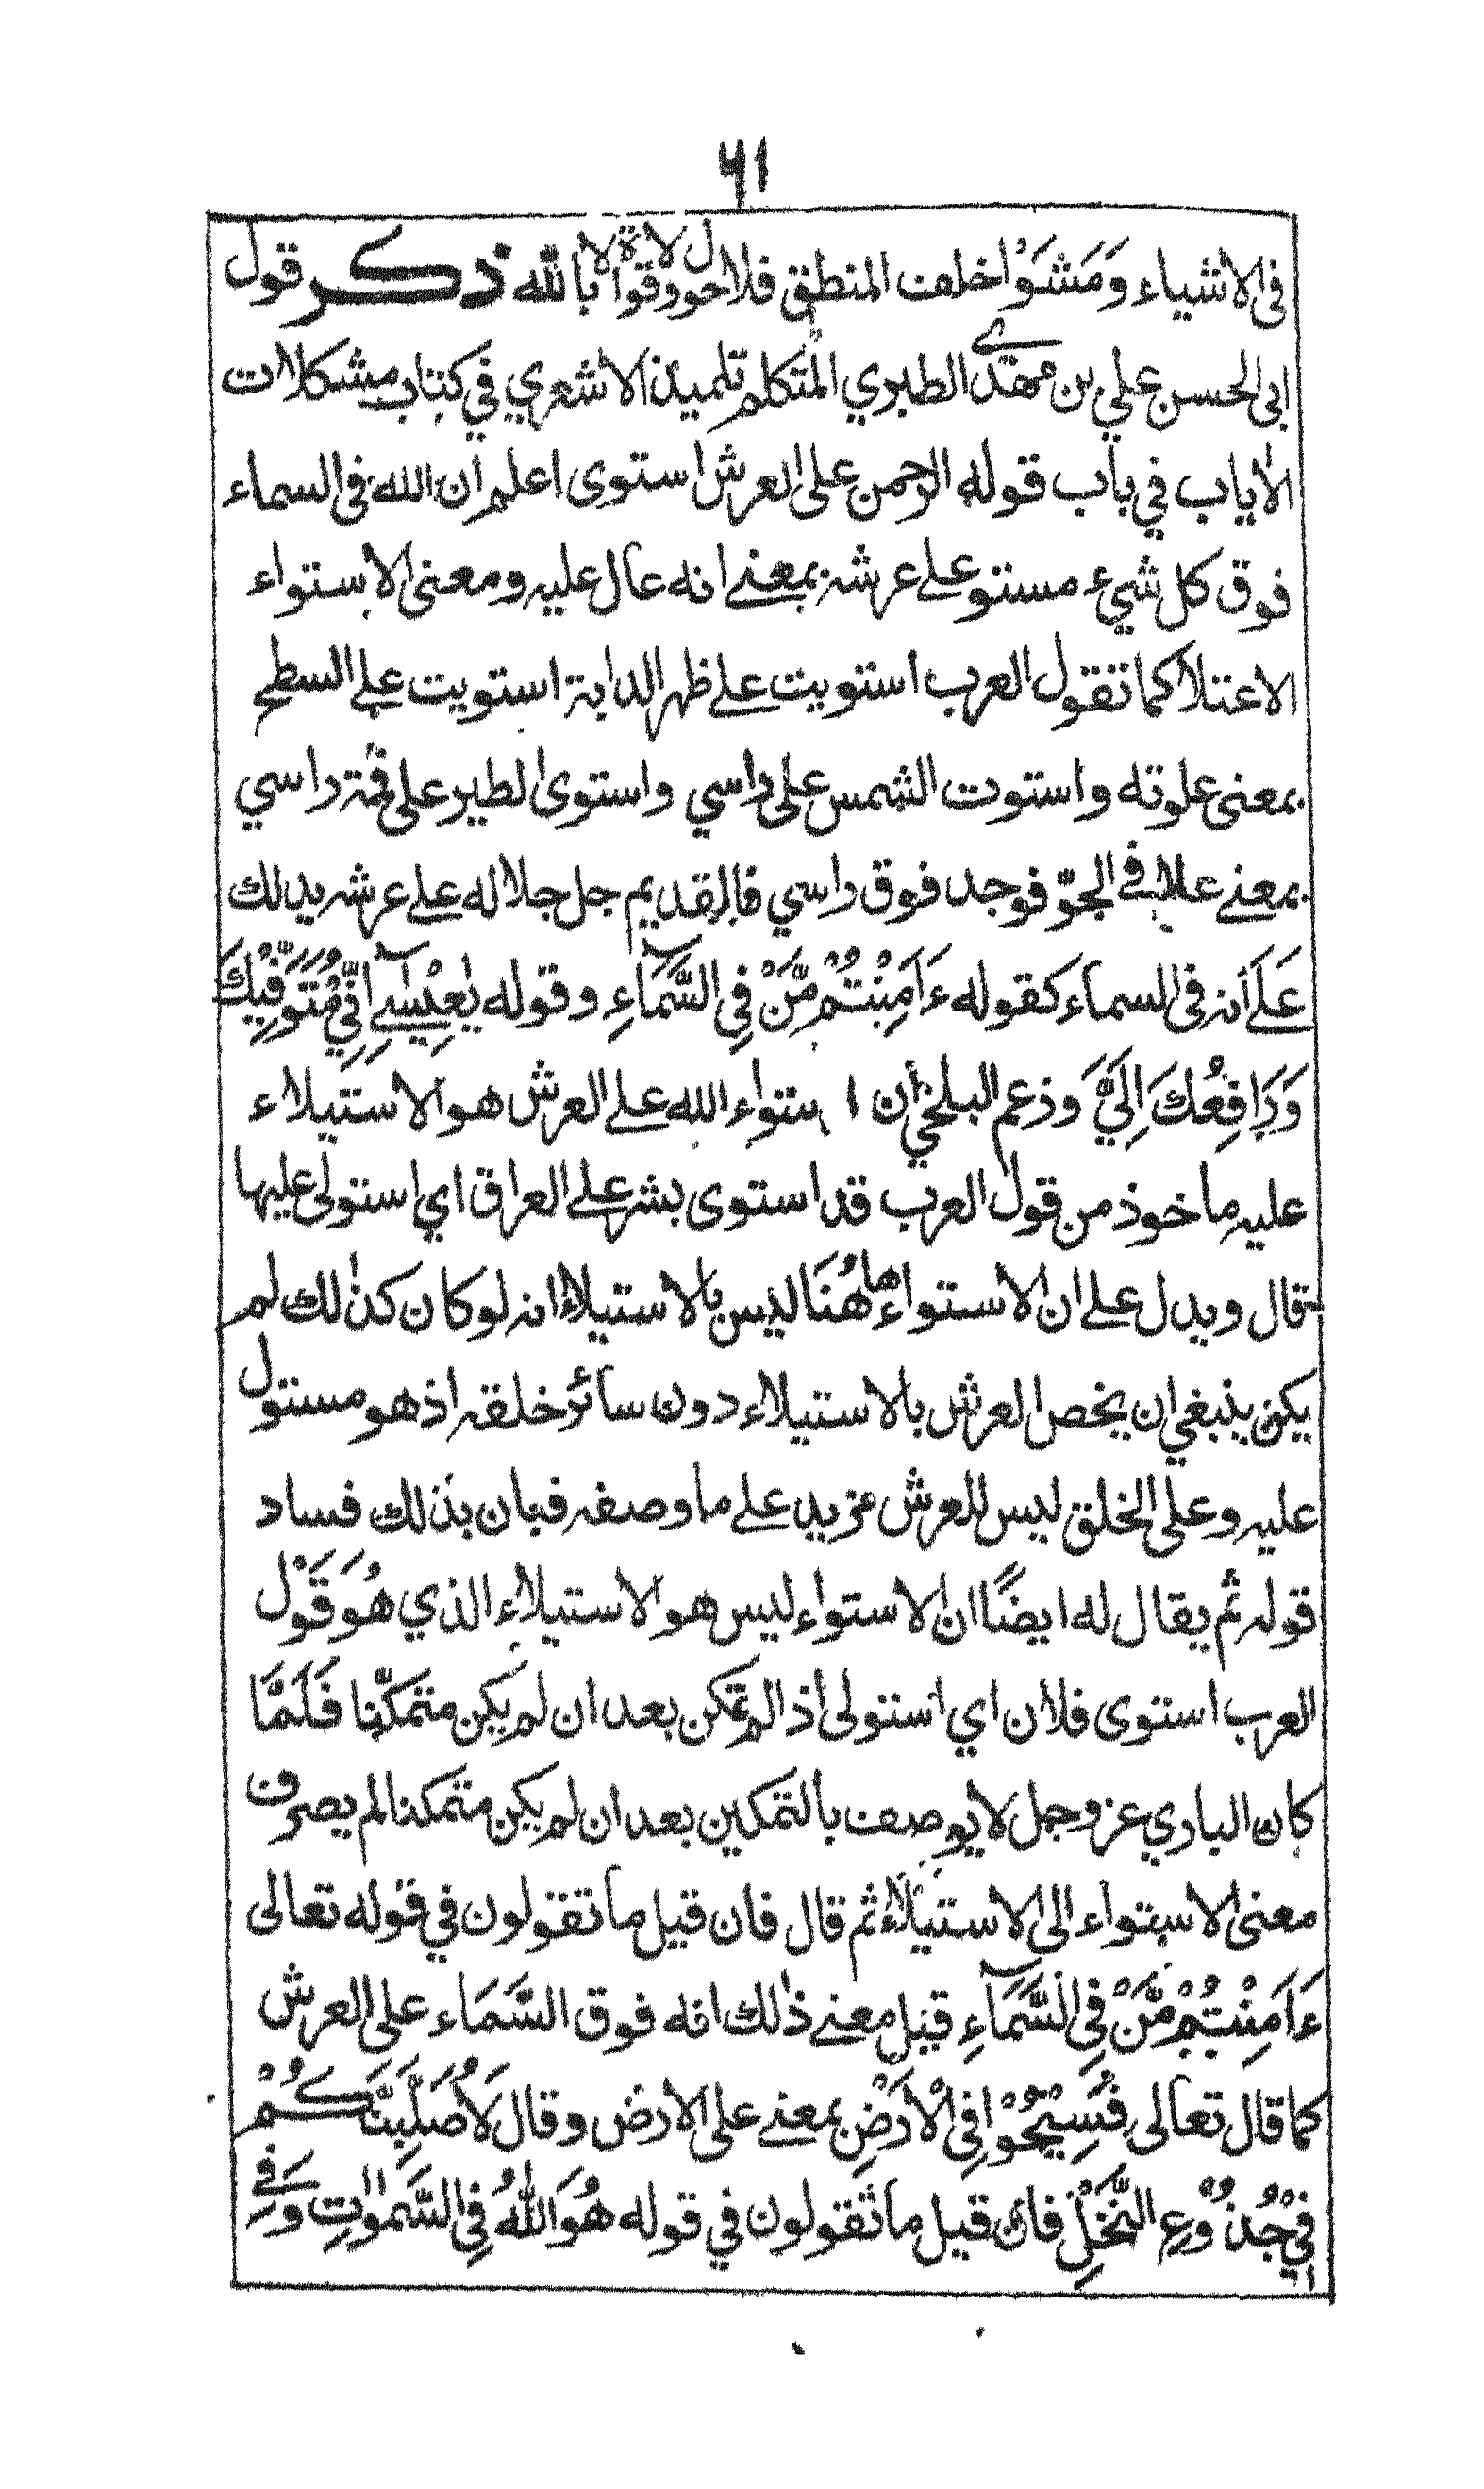 ٦١
فى الاشياء وَمَشَوْا خلف المنطق فلا حول ولا قوة الا بالله ذكر قول
ابى الحسن علي بن مهدي الطبري المتكلم تلميذ الاشعري في كتاب مشكلات
الآيات في باب قوله الرحمن على العرش استوى اعلم ان الله فى السماء
فوق كل شيء مستو على عرشه بمعنى انه عال عليه ومعنى الاستواء
الاعتلا كما تقول العرب استويت على ظهر الدابة استويت على السطح
بمعنى علوته واستوت الشمس على راسي واستوى الطير على قمة راسي
بمعنى علا فى الجوّ فوجد فوق راسي فالقديم جل جلاله على عرشه يدلك
عَلَى أنه فى السماء كقوله ءَاَمِنْتُمْ مَّنْ فِى السَّمَآءِ وقوله يٰعِيْسٰٓى اِنِّي مُتَوَفِّيْكَ
وَرَافِعُكَ اِلَيَّ وزعم البلخي أن استواء الله على العرش هو الاستيلاء
عليه ماخوذ من قول العرب قد استوى بشر على العراق اي استولى عليها
قال ويدل على ان الاستواء هاهُنَا ليس بالاستيلاء انه لو كان كذلك لم
يكن ينبغي ان يخص العرش بالاستيلاء دون سائر خلقه اذ هو مستول
عليه وعلى الخلق ليس للعرش مزيد على ما وصفه فبان بذلك فساد
قوله ثم يقال له ايضًا ان الاستواء ليس هو الاستيلاء الذي هُوَ قَوْل
العرب استوى فلان اي استولى اذا لم تمكن بعد ان لم يكن متمكّنا فَلَمَّا
كان الباري عز وجل لا يوصف بالتمكين بعد ان لم يكن متمكنا لم يصرف
معنى الاستواء الى الاستيلاء ثم قال فان قيل ما تقولون في قوله تعالى
ءَاَمِنْتُمْ مَّنْ فِى السَّمَآءِ قيل معنى ذٰلك انه فوق السَّمَاء على العرش
كما قال تعالى فَسِيْحُوْا فِى الْاَرْضِ بمعنى على الارض وقال لَاُصَلِّبَنَّكُمْ
فِيْ جُذُوْعِ النَّخْلِ فان قيل ما تقولون في قوله هُوَ اللّٰهُ فِى السَّمٰوٰتِ وَفِى